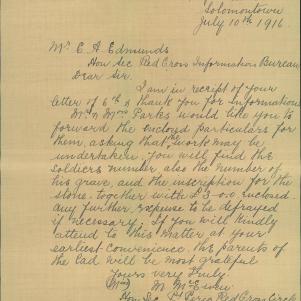 Solomontown
July 10th 1916.
Mr E. A. Edmunds
Hon Sec Red Cross Information Bureau
Dear Sir.
I am in receipt of your
letter of 6th & thank you for information
Mr & Mrs Parks would like you to
forward the enclosed particulars for
them, asking that the work may be
undertaken. You will find the
soldiers number also the number of
his grave, and the inscription for the
stone, together with £3-0-0 enclosed
any further expense to be defrayed
if necessary. If you will kindly
attend to this matter at your
earliest convenience, the parents of
the lad will be most grateful
Yours very truly
(Mrs) M McEwen
Hon Sec Pt Pirie Red Cross Circle